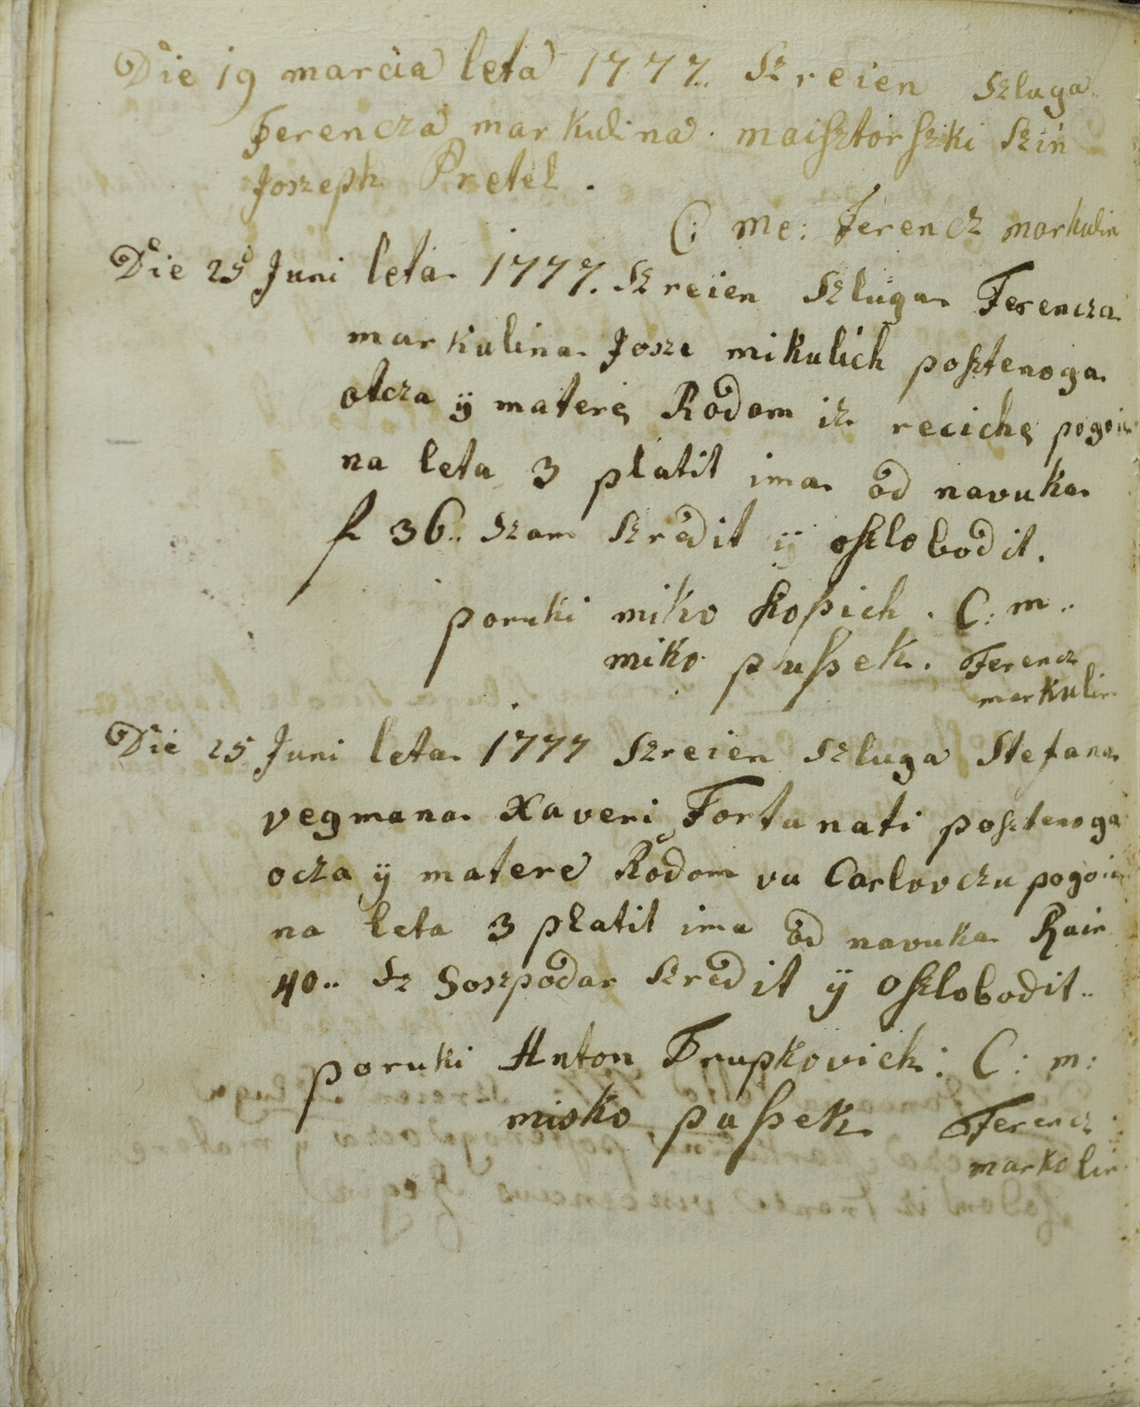 Die 19 marcia leta 1777. Szreien Szluga
Ferencza markulina. maisztorszki Szin
Joszeph Pretel.
C: me: Ferencz markulin
Die 25 Juni leta 1777. Szreien Szluga Ferencza
markulina Josze mikulich posztenoga
otcza ÿ matere Rodom iz reciche
na leta 3 platit ima od navuka
f 36.. szam szredit ÿ oszlobodit.
poruki miko kopich. C: m..
miko pussek. Ferencz
markulin
Die 25 Juni leta 1777 Szreien Szluga Stefana
vegmana Xaveri Fortunati posztenoga
ocza ÿ matere Rodom vu Carlovczu pogoien
na leta 3 platit ima od navuka Rain
40.. Sz Goszpodar szredit ÿ oszlobodit..
poruki Anton Trupkovich: C: m:
misko pussek Ferencz
markolin